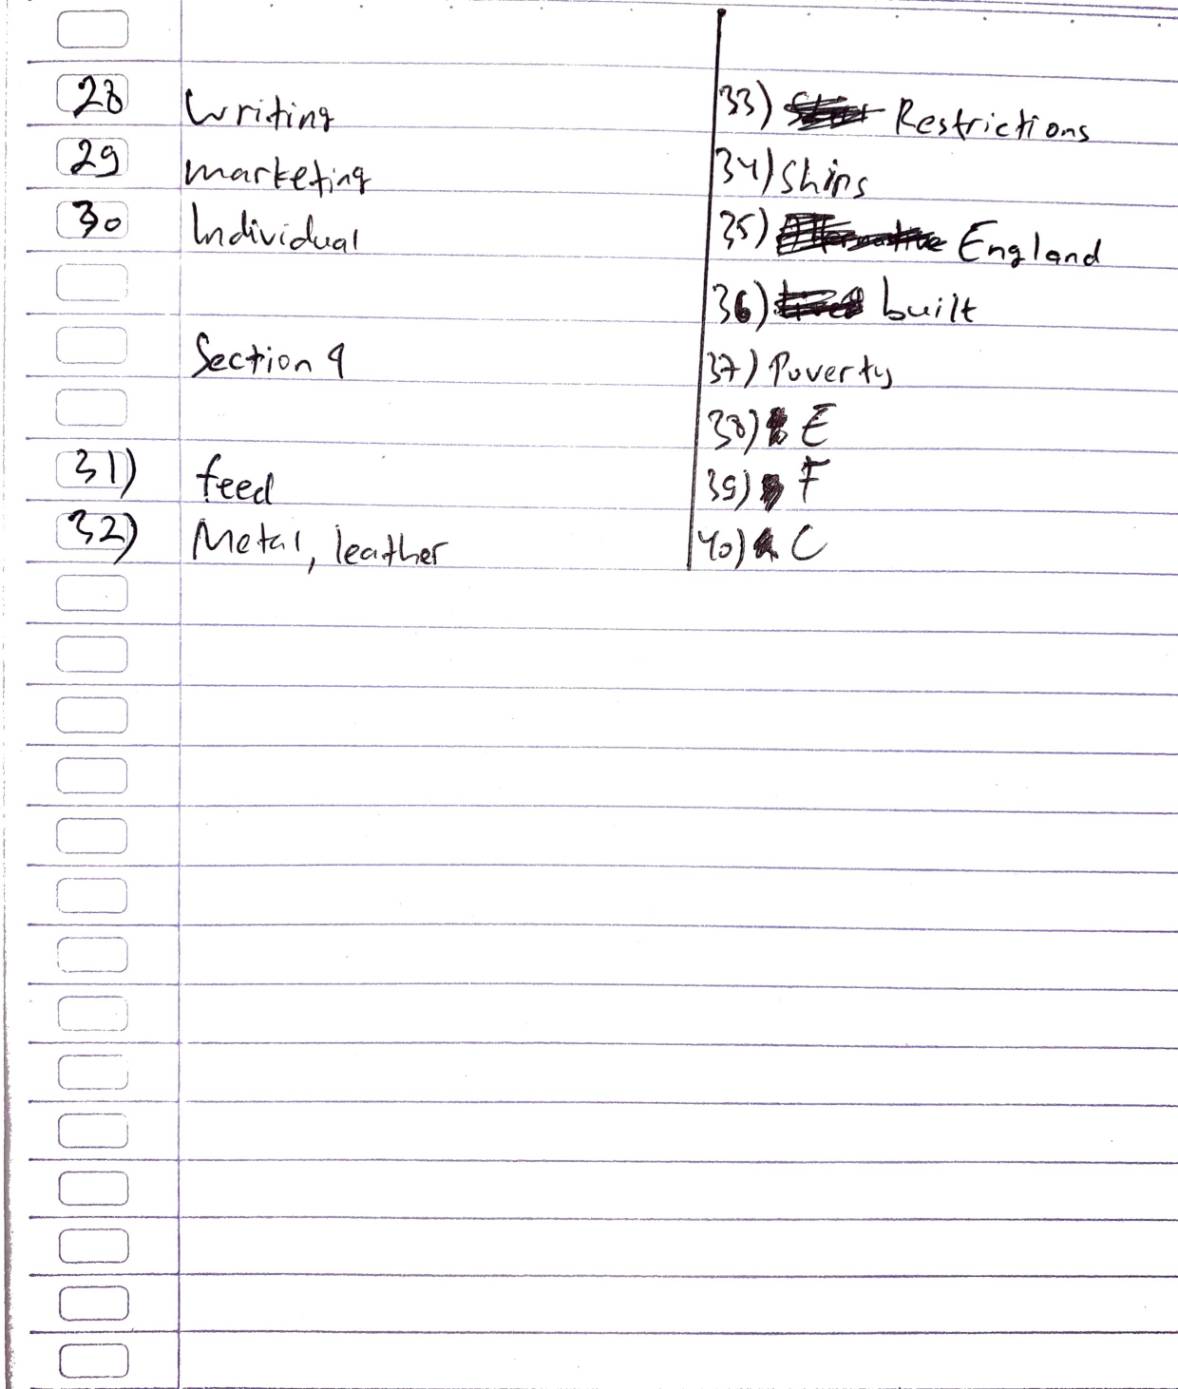 28 Writing
29 marketing
30 Individual
Section 4
31) feed
32) Metal, leather
33) Restrictions
34) Ships
35) England
36) built
37) Poverty
38) E
39) F
40) C